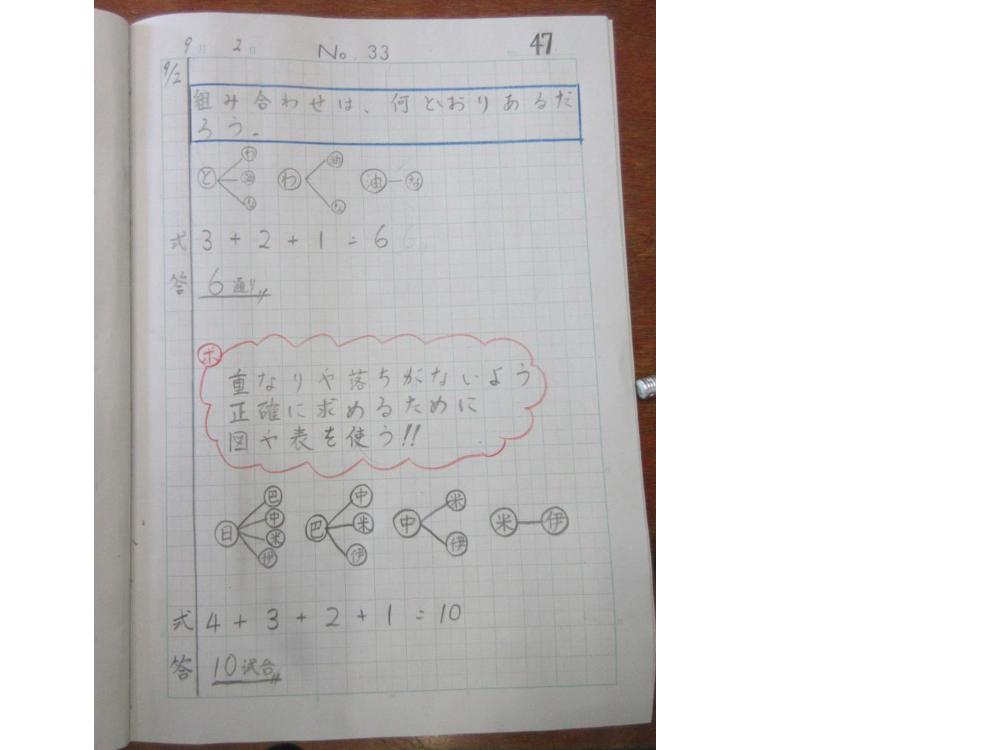 9月 2日 No. 33 47
9/2
組み合わせは、何とおりあるだ
ろう。
と わ 油 な わ 油 な 油 な
式 3 + 2 + 1 = 6
答 6通り
ポ
重なりや落ちがないよう
正確に求めるために
図や表を使う!!
日 巴 中 米 伊 巴 中 米 伊 中 米 伊 米 伊
式 4 + 3 + 2 + 1 = 10
答 10試合